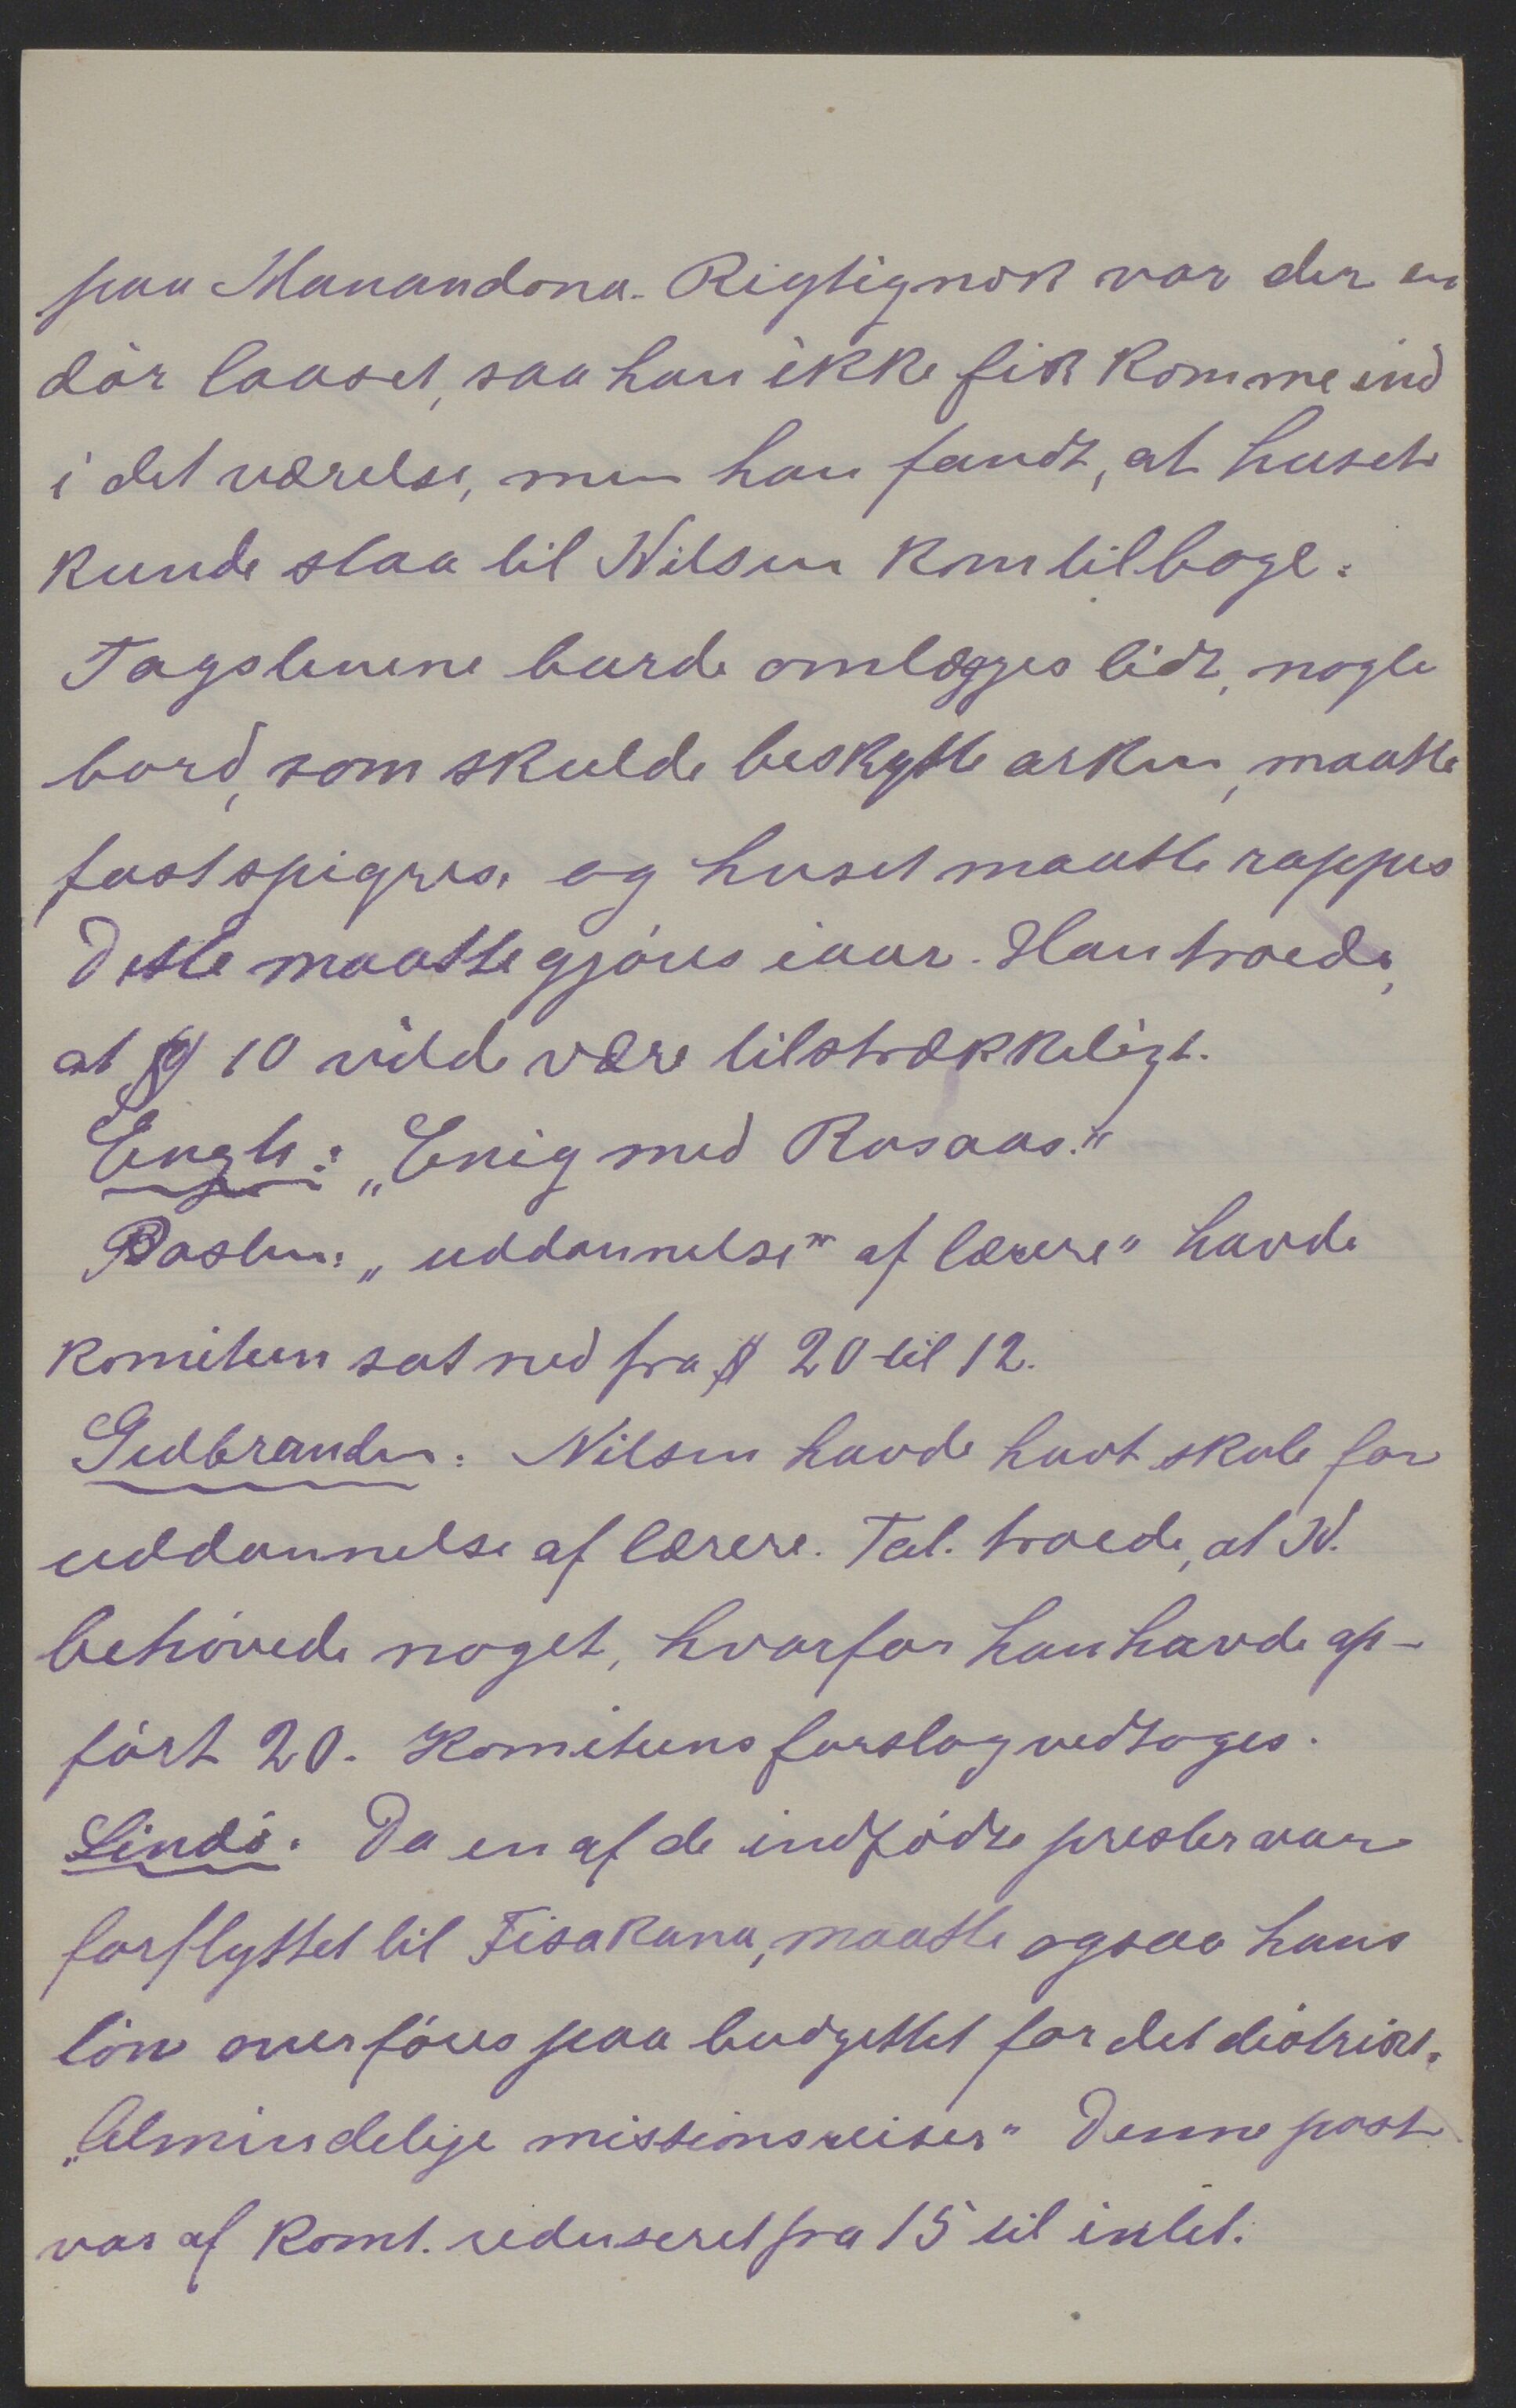 paa Manandona. Rigtignok var der en
dör laaset, saa han ikke fik komme ind
i det værelse, men han fandt, at huset
kunde staa til Nilsen kom tilbage.
Tagstenene burde omlægges lidt, nogle
bord, som skulde beskytte arken, maatte
fastspigres. og huset maatte rappes
Dette maatte gjöres iaar. Han troede,
at $ 10 vilde være tilstrækkeligt.
Engh: „Enig med Rosaas."
Posten: „uddannelse" af lærere" havde
komiteen sat ned fra $ 20 til 12.
Gudbrandsen: Nilsen havde havt skole for
uddannelse af lærere. Tal. troede, at N.
behövede noget, hvorfor han havde op-
fört 20. Komiteens forslag vedtoges.
Lindö. Da en af de indfödte prester var
forflyttet til Fisakana, maatte ogsaa hans
lön overföres paa budgettet for det distrikt.
„Almindelige missionsreiser" Denne post
var af komt. reduseret fra 15 til intet.